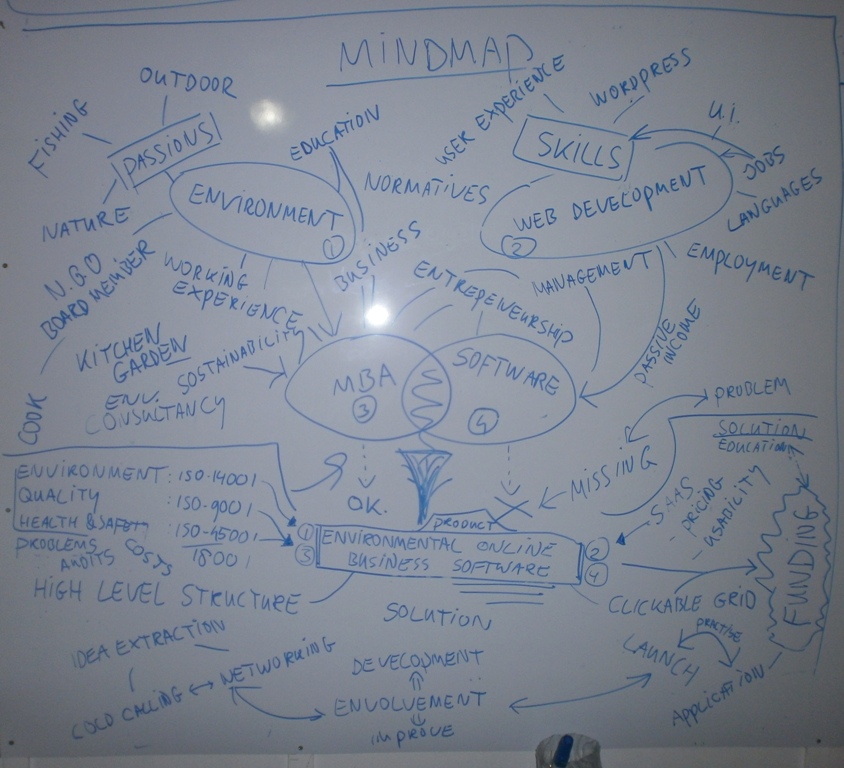 MINDMAP
OUTDOOR
FISHING
PASSIONS
NATURE
EDUCATION
ENVIRONMENT
1
NORMATIVES
USER EXPERIENCE
WORDPRESS
U.I.
SKILLS
JOBS
WEB DEVELOPMENT
2
LANGUAGES
EMPLOYMENT
N.G.O
BOARD MEMBER
WORKING
EXPERIENCE
BUSINESS
ENTREPENEURSHIP
MANAGEMENT
PASSIVE
INCOME
KITCHEN
GARDEN
SOSTAINABILITY
ENV.
CONSULTANCY
COOK
MBA
3
SOFTWARE
4
PROBLEM
SOLUTION
EDUCATION
MISSING
OK.
ENVIRONMENT : ISO-14001
QUALITY : ISO-9001
HEALTH & SAFETY ISO-45001
18001
PROBLEMS
AUDITS
COSTS
PRODUCT
1
3
ENVIRONMENTAL ONLINE
BUSINESS SOFTWARE
2
4
SAAS
- PRICING
- USABILITY
FUNDING
HIGH LEVEL STRUCTURE
SOLUTION
CLICKABLE GRID
PRACTISE
LAUNCH
APPLICATION
IDEA EXTRACTION
NETWORKING
COLD CALLING
DEVELOPMENT
ENVOLVEMENT
IMPROVE